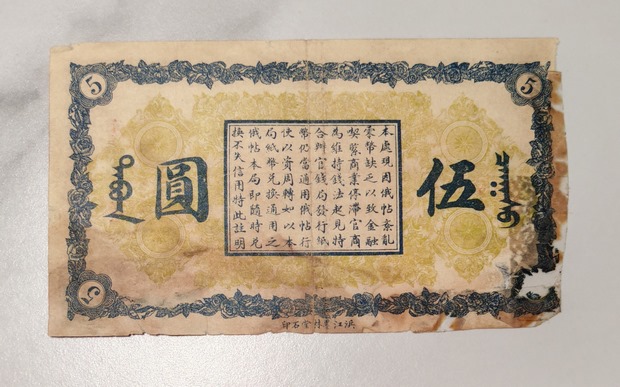 5
5
伍圓
本處現因俄帖紊亂
零幣缺乏以致金融
商業停滯官商
為維持錢法起見特
合辦官錢局發行紙
幣仍當通用俄帖行
使以資周轉如以本
局紙幣兌換通用之
俄帖本局即隨時兌
換不失信用特此註明
5
江石印